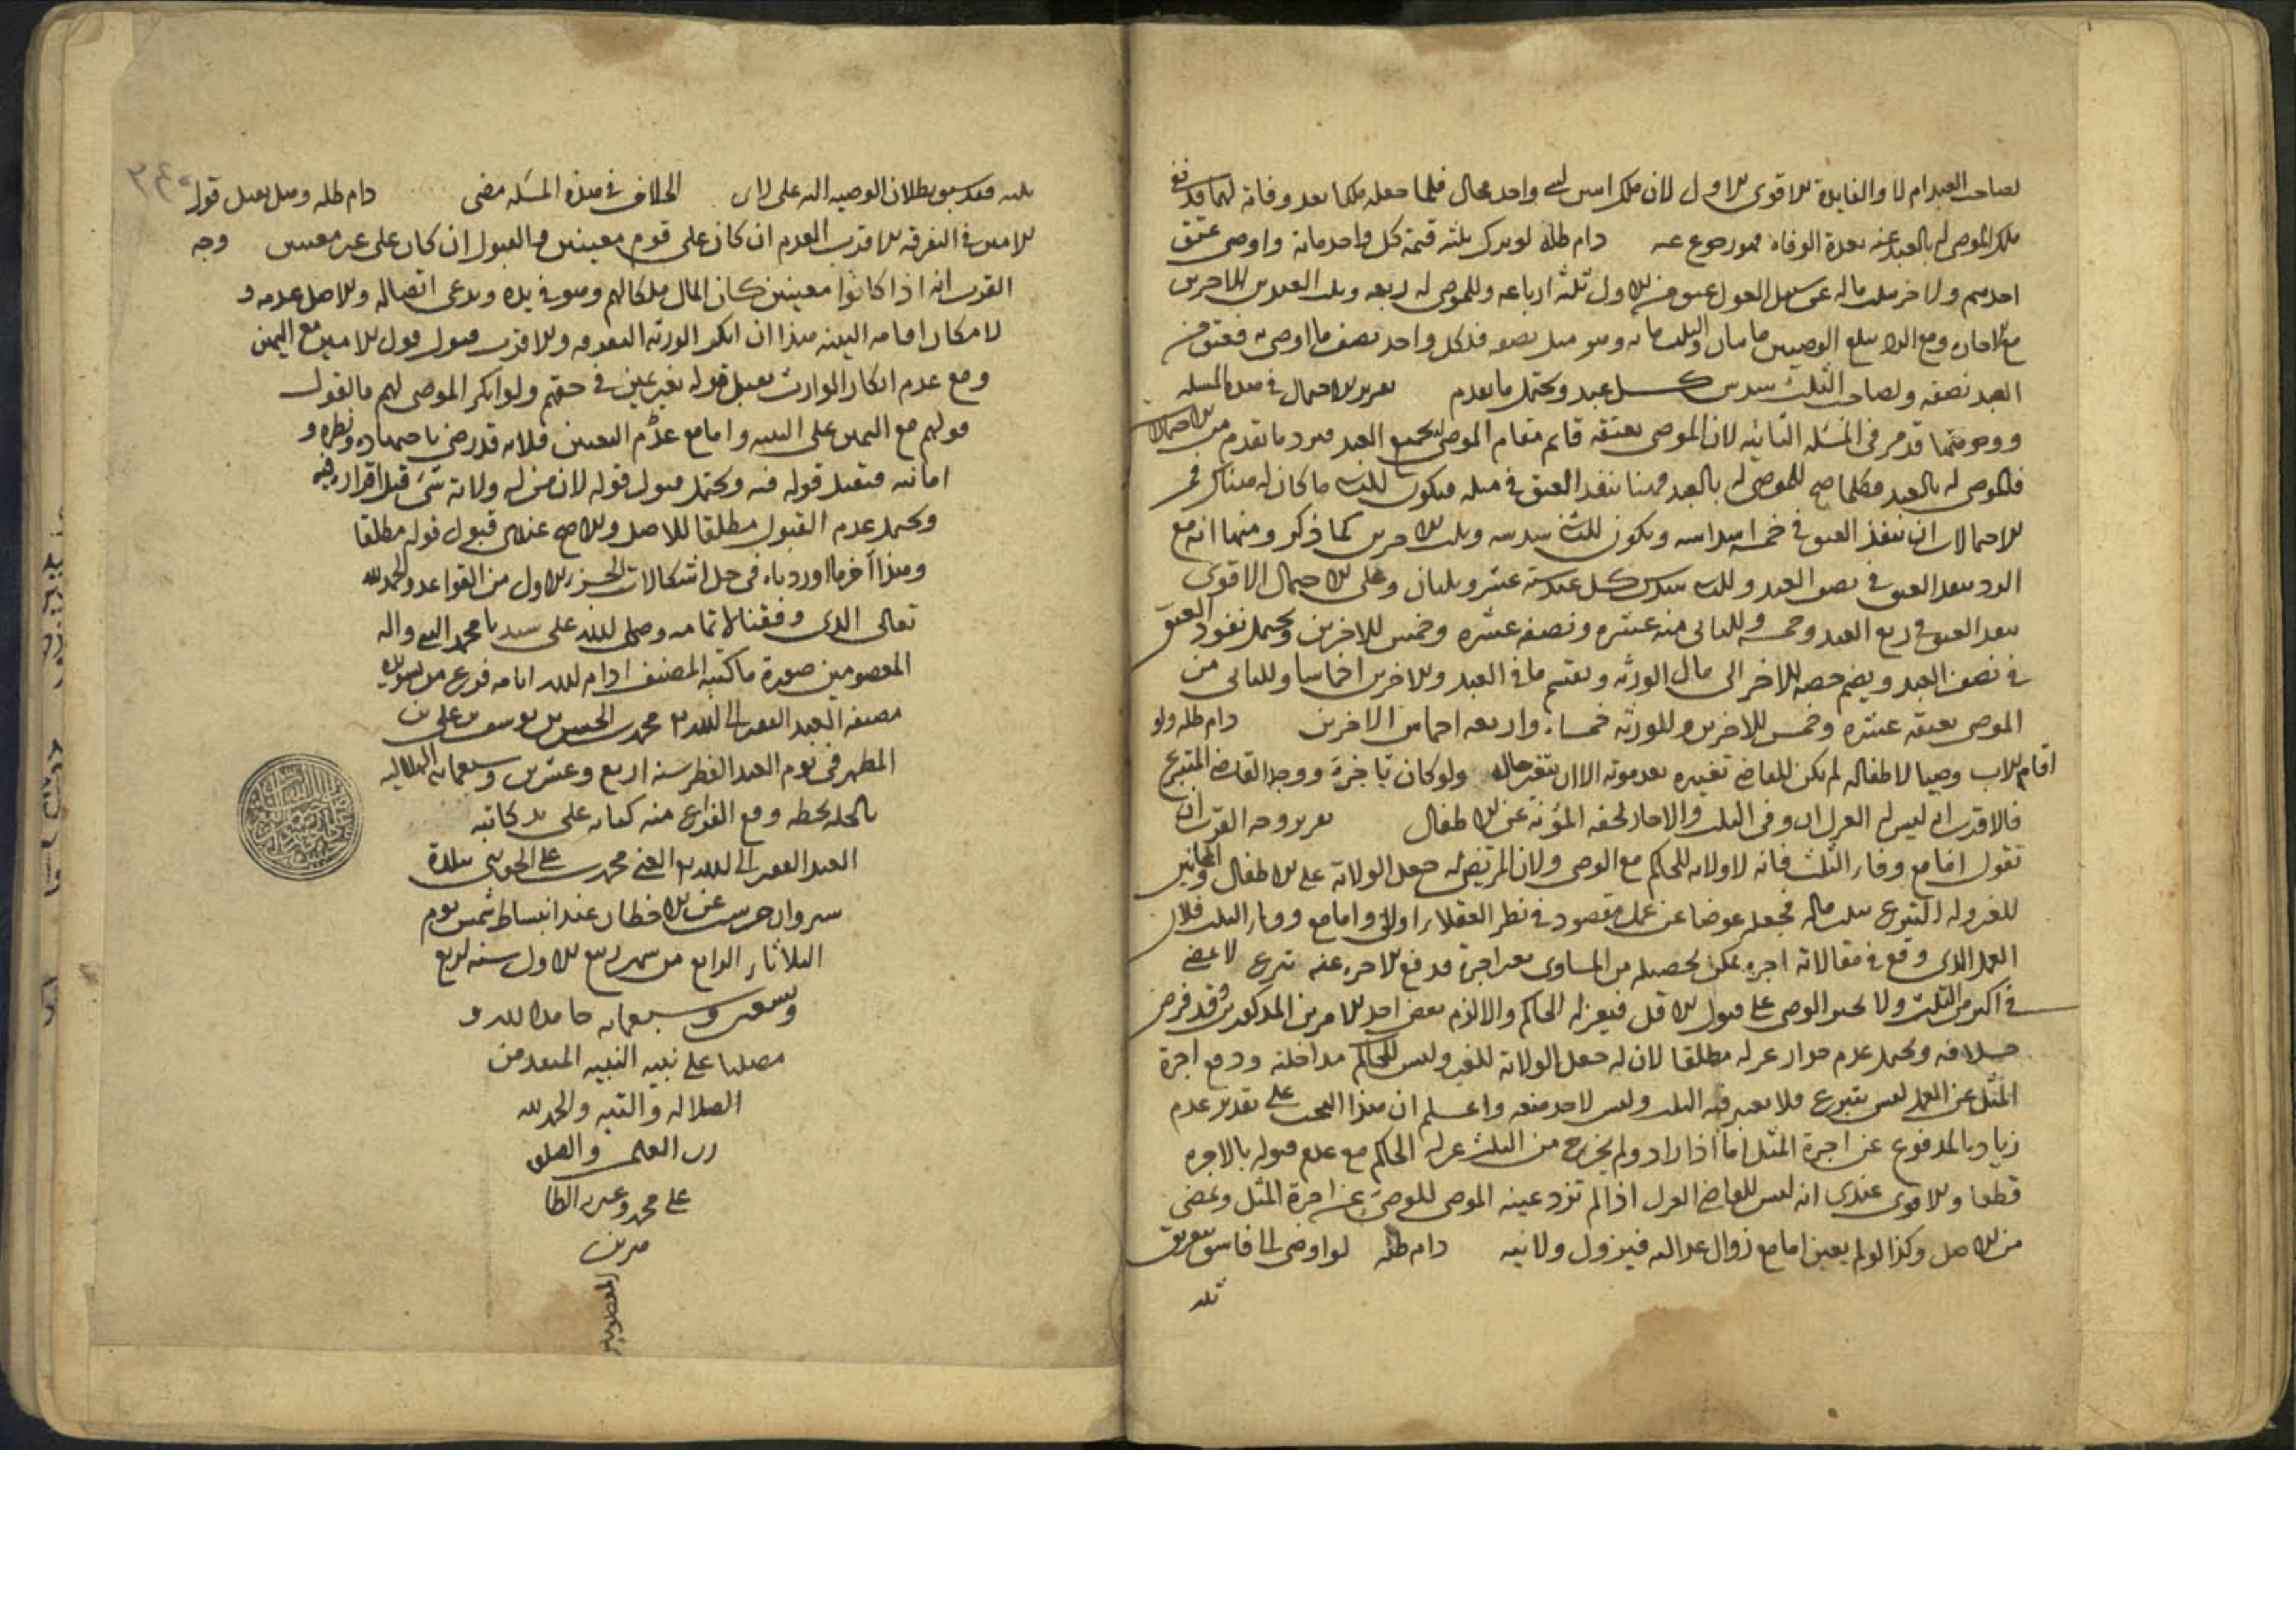 لصاحب العبد ام لا والفايدة الاقوى الاول لان ملك اثنين لشي واحد محال فلما جعله ملكا بعد وفاته لهما فقد نفى
ملك الموصى له بالعبد عنه بعد الوفاة فهو رجوع عنه دام ظله لو ترك ثلثه قيمة كل واحد ماية واوصى بعتق
احدهم ولاخر بثلث ماله على سبيل العول عتق من الاول ثلثة ارباعه وللموصى له ربعه وثلث العبدين الاخرين
مع الاجازه ومع الرد تبلغ الوصيتين مايتان والثلث مايه وهو مثل نصفه فلكل واحد نصف ما اوصى به فعتق من
العبد نصفه ولصاحب الثلث سدس كل عبد ويحتمل ما تقدم تقرير الاحتمال في هذه المسله
ووجوهها قد مر في المسله الثانيه لان الموصى بعتقه قايم مقام الموصى بجميع العبد فيرد ما تقدم من الاحتمالات
فالموصى له بالعبد فكلما صح للموصى له بالعبد فهنا ينفذ العتق في مثله فيكون للثلث ما كان له هناك
الاحتمالات ان ينفذ العتق في خمسة اسداسه ويكون للثلث سدسه وثلث الاخرين كما ذكر ومنها انه مع
الرد ينفذ العتق في نصف العبد وللثلث سدس كل عبد ستة عشر وثلثان وعلى الاحتمال الاقوى
ينفذ العتق في ربع العبد وخمسه وللثاني منه عشره ونصف عشره وخمس للاخرين ويحتمل نفوذ العتق
في نصف العبد ويضم حصه الاخر الى مال الورثه ويقسم ما في العبد والاخرين اخماسا وللثاني من
الموصى بعتقه عشره وخمس للاخرين وللورثه خمسا واربعه اخماس الاخرين دام ظله ولو
اقام الاب وصيا لاطفاله لم يكن للقاضي تغييره بعد موته الا ان يتغير حاله ولو كان باجرة ووجد القاضي المتبرع
فالاقرب انه ليس له العزل ان وفى الثلث والاجاز لحفه المؤنة عن الاطفال تقرير وجه القرب ان
نقول اما مع وفاء الثلث فانه لا ولايه للحاكم مع الوصي ولان للمريض له جعل الولاية على الاطفال والمجانين
للغير وله التبرع بثلث ماله فجعله عوضا عن عمل مقصود في نظر العقلاء اولى واما مع وفاء الثلث فلان
العمل الذي وقع في مقالاته اجره يمكن تحصيله من المساوى بغير اجرة فدفع الاجره عنه تبرع لا يمضى
في اكثر من الثلث ولا يجبر الوصي على قبول الاقل فيعزله الحاكم والا لزم بعض احد الامرين المذكورين وقد فرض
خلافه ويحتمل عدم جواز عزله مطلقا لان له جعل الولاية للغير وليس للحاكم مداخلته ودفع اجرة
المثل عن العمل ليس بتبرع فلا يعتبر فيه الثلث وليس لاحد منعه واعلم ان هذا البحث على تقدير عدم
زيادة المدفوع عن اجرة المثل اما اذا زاد ولم يخرج من الثلث عزله الحاكم مع عدم قبوله بالاجره
قطعا والاقوى عندي انه ليس للقاضي العزل اذا لم تزد عينه الموصي للوصي عن اجرة المثل وتمضى
من الاصل وكذا لو لم يعين اما مع زوال عدالته فيزول ولايته دام ظله لو اوصى الى فاسق بتفريق
ثلثه
ثلثه فقد سبق بطلان الوصيه اليه على راى الخلاف في هذه المسله مضى دام ظله وهل يقبل قول
الامين في التفرقه الاقرب العدم ان كان على قوم معينين والقبول ان كان على غير معينين وجه
القرب انه اذا كانوا معينين كان المال ملكا لهم وهو في يده ويدعى اتصاله والاصل عدمه و
لامكان اقامه البينه هذا ان انكر الورثه التفرقه والاقرب قبول قول الامين مع اليمين
ومع عدم انكار الوارث يقبل قوله بغير يمين في حقهم ولو انكر الموصى لهم فالقول
قولهم مع اليمين على البينه واما مع عدم التعيين فلانه قد رضى باجتهاده ونظره و
امانته فيقبل قوله فيه ويحتمل قبول قوله لان من له ولاية شي قبل اقراره فيه
ويحتمل عدم القبول مطلقا للاصل والاصح عندي قبول قوله مطلقا
وهذا آخر ما اوردناه في حل اشكالات الجزء الاول من القواعد والحمد لله
تعالى الذي وفقنا لاتمامه وصلى الله على سيدنا محمد النبي واله
المعصومين صورة ما كتبه المصنف ادام الله ايامه فرغ من تسويده
مصنفه العبد الفقير الى الله محمد بن الحسن بن يوسف بن علي بن
المطهر في يوم العيد الفطر سنه اربع وعشرين وسبعمايه الهلاليه
بالحله بخطه وقع الفراغ منه كتابه على يد كاتبه
العبد الفقير الى الله الغني محمد بن علي ببلدة
حرست عن الاخطار عند انبساط شمس يوم
الثلاثاء الرابع من شهر ربيع الاول سنه اربع
وسبعمايه حامدا لله و
مصليا على نبيه النبيه المنقذ من
الضلاله والتيه والحمد لله
رب العلمين والصلوه
على محمد وعترته الطا
هرين
المعصومين